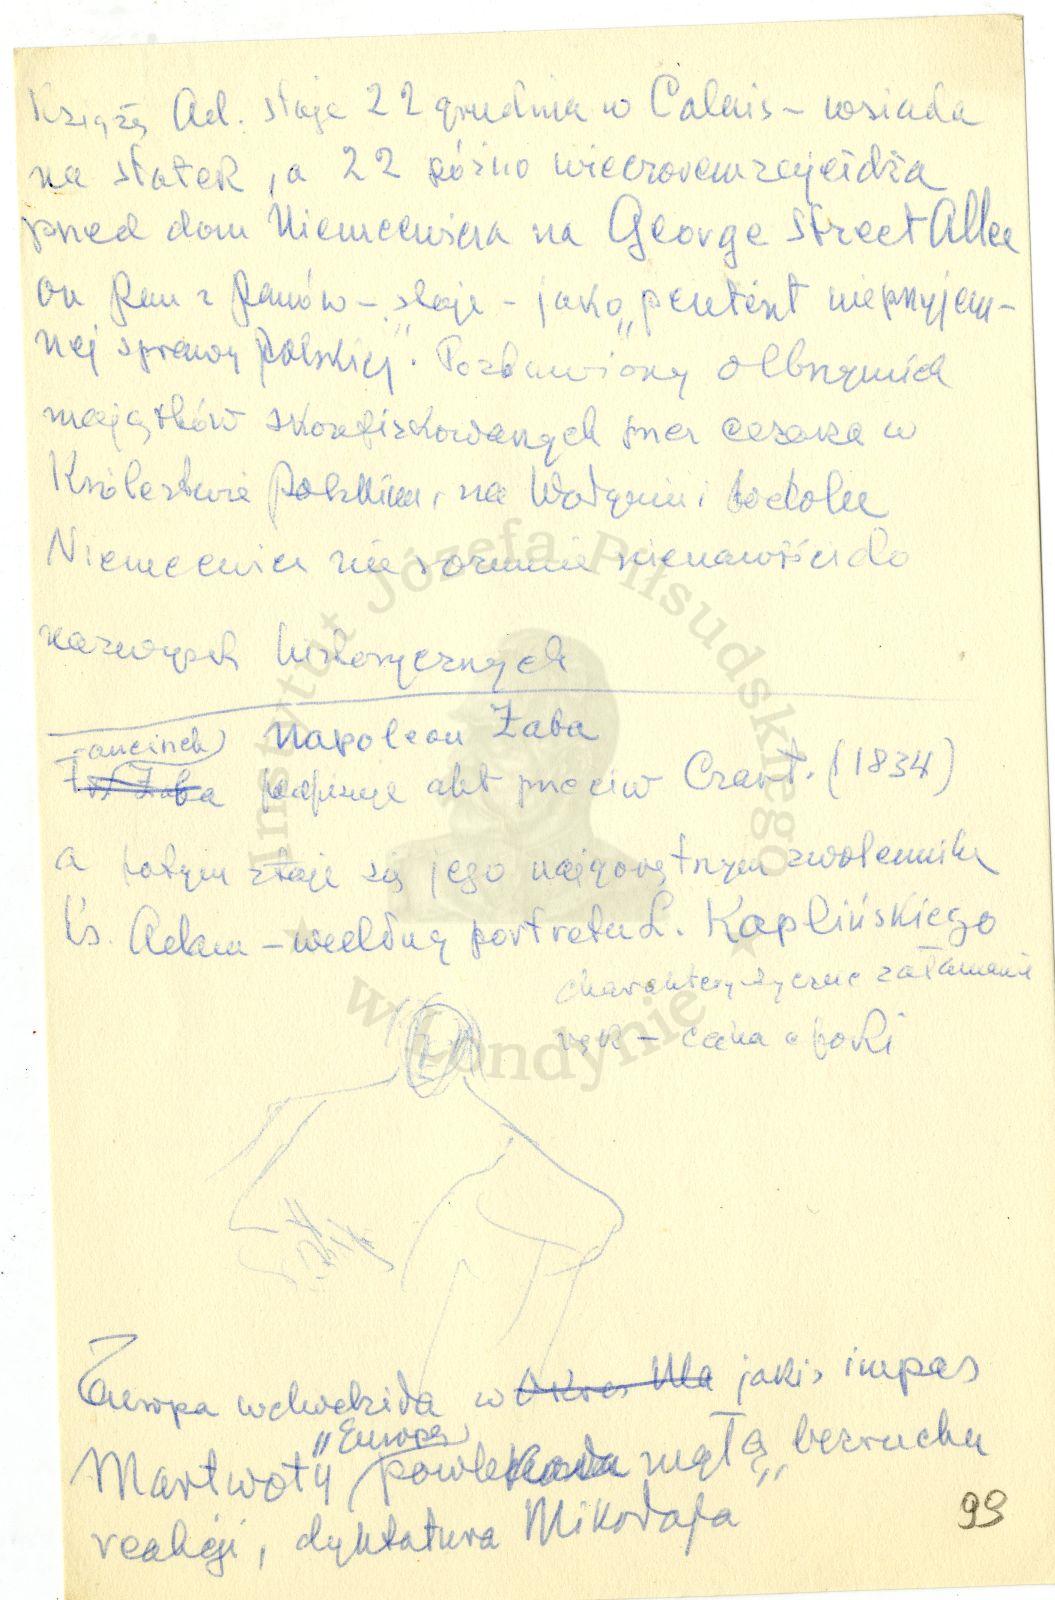 Książę Ad. staje 22 grudnia w Calais – wsiada
na statek, a 22 późno wieczorem zajeżdża
przed dom Niemcewicza na George Street Allee
on Pan z Panów – staje – jako „petent nieprzyjem-
nej sprawy polskiej". Pozbawiony olbrzymich
majątków skonfiskowanych przez cesarza w
Królestwie Polskim, na Wołyniu i Podolu
Niemcewicz nie rozumie nienawiści do
nazwisk historycznych
Franciszek Napoleon Żaba
Żaba podpisuje akt przeciw Czart. (1834)
a potym staje się jego najgorętszym zwolennikiem
Ks. Adam – według portretu L. Kaplińskiego
charakterystyczne załamanie
rąk – cecha epoki
Instytut Józefa Piłsudskiego
w Londynie
Europa wchodziła w Okres Ma jakiś impas
„Europę
Martwoty powlekała mgłą „bezruchu
reakcji, dyktatura Mikołaja
99